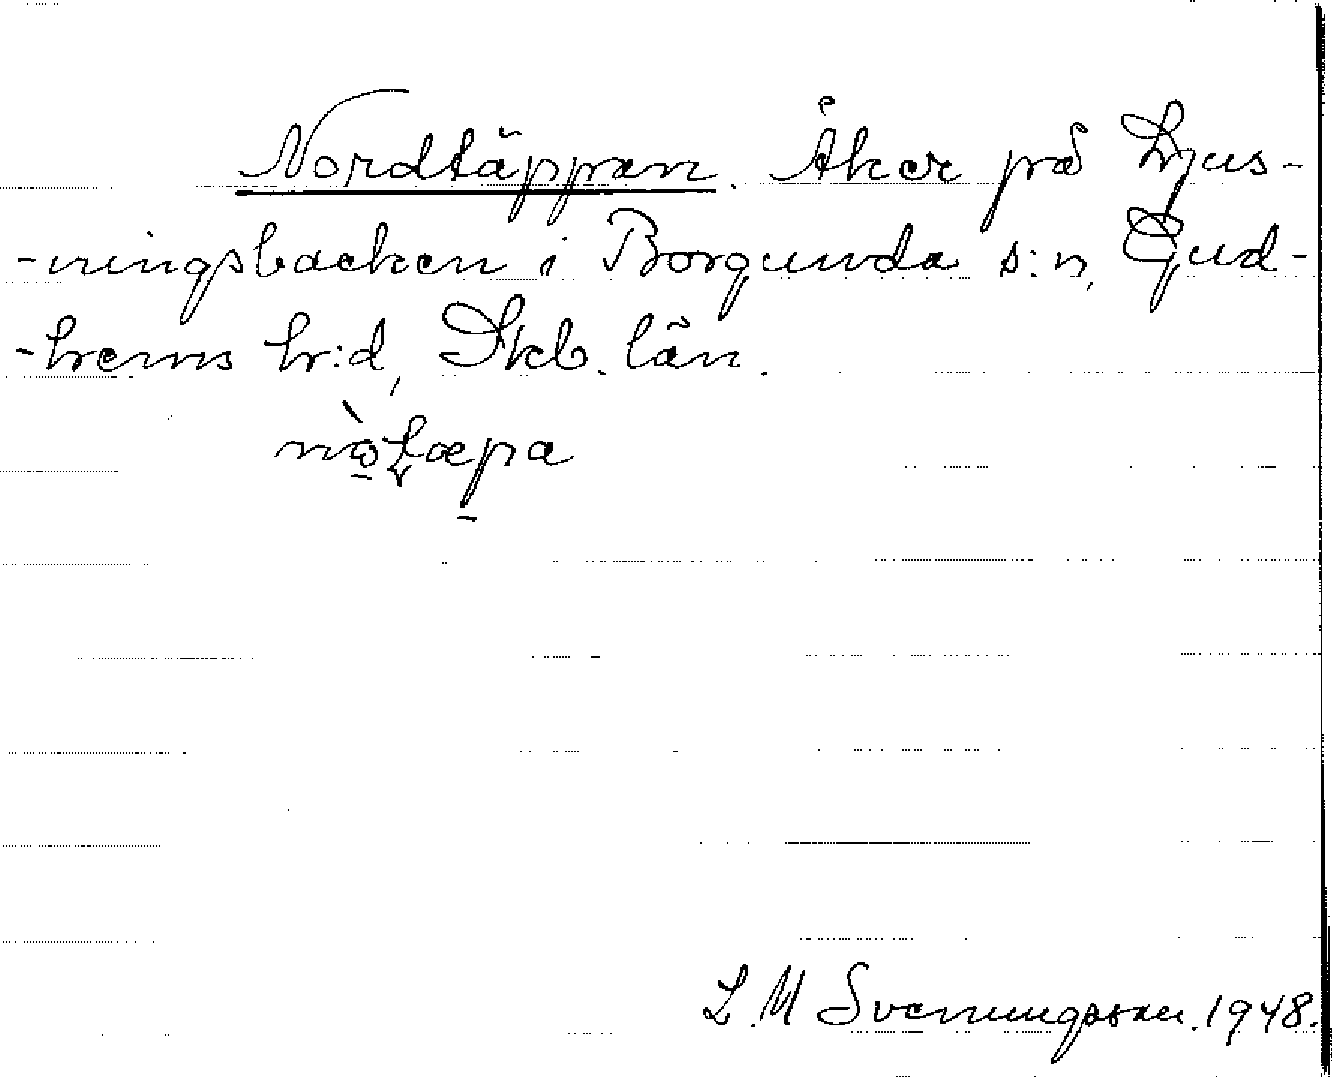 Nordtäppan. Åker på Ljus-
-ningsbacken i Borgunda s:n, Gud-
-hems h:d, Skb. län.
L. M Svenungsson. 1948.